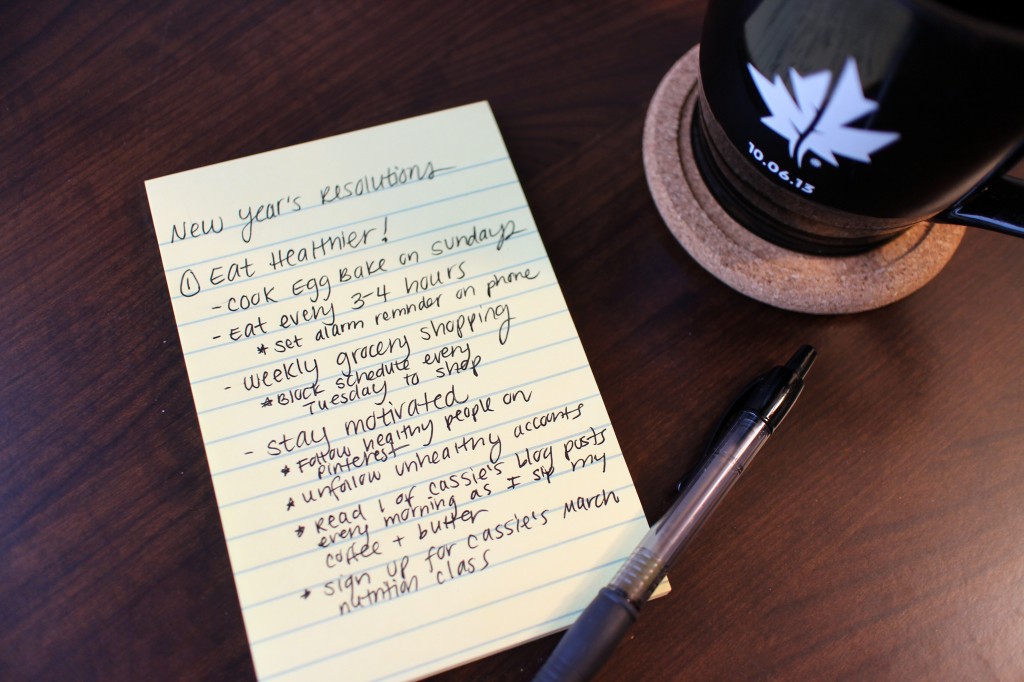 New Year's Resolutions
① Eat Healthier!
- Cook Egg Bake on Sundays
- Eat every 3-4 hours
* Set alarm reminder on phone
- Weekly grocery shopping
* Block schedule every
Tuesday to shop
- Stay motivated
* Follow healthy people on
pinterest
* unfollow unhealthy accounts
* Read 1 of Cassie's blog posts
every morning as I sip my
coffee + butter
* sign up for Cassie's March
nutrition class
10.06.13